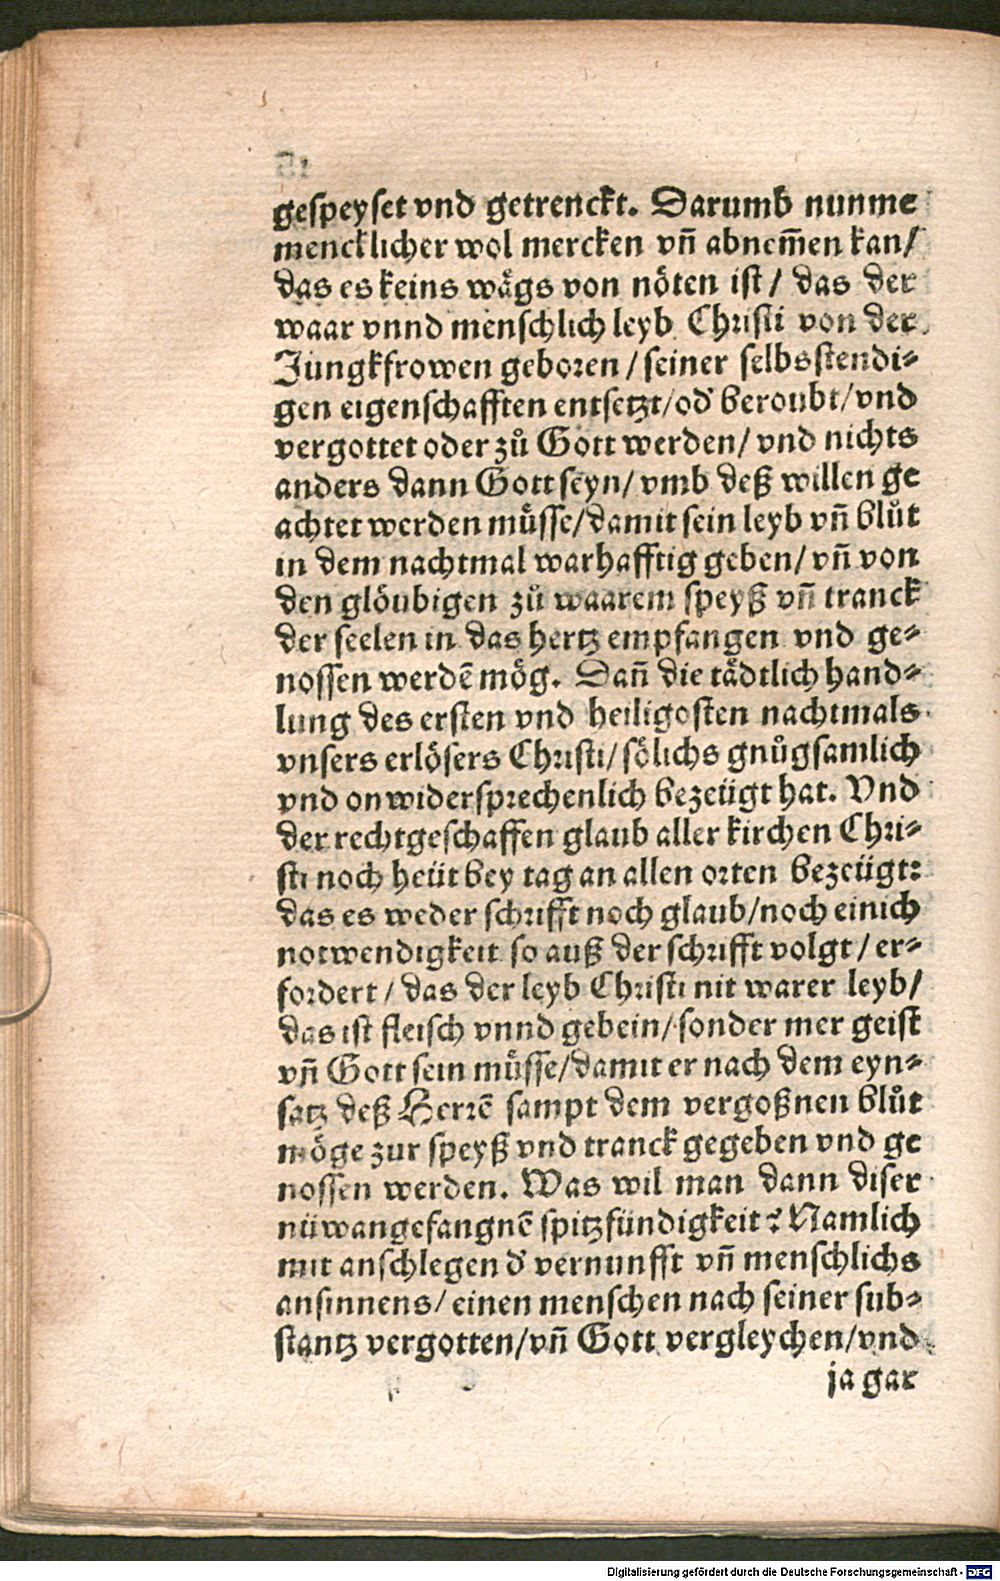 gespeyset vnd getrenckt. Darumb nunme
mencklicher wol mercken vn̄ abnem̄en kan/
das es keins wägs von nöten ist / das der
waar vnnd menschlich leyb Christi von der
Jungkfrowen geboren / seiner selbsstendi⸗
gen eigenschafften entsetzt/od̕ beroubt/vnd
vergottet oder zů Gott werden/ vnd nichts
anders dann Gott seyn/ vmb deß willen ge
achtet werden müsse/damit sein leyb vn̄ blůt
in dem nachtmal warhafftig geben/ vn̄ von
den glöubigen zů waarem speyß vn̄ tranck
der seelen in das hertz empfangen vnd ge⸗
nossen werdē mög. Dan̄ die tädtlich hand⸗
lung des ersten vnd heiligosten nachtmals
vnsers erlösers Christi/ sölichs gnůgsamlich
vnd on widersprechenlich bezeügt hat. Vnd
der rechtgeschaffen glaub aller kirchen Chri⸗
sti noch heüt bey tag an allen orten bezeügt:
das es weder schrifft noch glaub/noch einich
notwendigkeit so auß der schrifft volgt / er⸗
fordert / das der leyb Christi nit warer leyb/
das ist fleisch vnnd gebein/ sonder mer geist
vn̄ Gott sein müsse/damit er nach dem eyn⸗
satz deß Herrē sampt dem vergoßnen blůt
möge zur speyß vnd tranck gegeben vnd ge
nossen werden. Was wil man dann diser
nüwangefangnē spitzfündigkeit? Namlich
mit anschlegen d̕ vernunfft vn̄ menschlichs
ansinnens/ einen menschen nach seiner sub⸗
stantz vergotten/vn̄ Gott vergleychen/vnd
ja gar
Digitalisierung gefördert durch die Deutsche Forschungsgemeinschaft - DFG